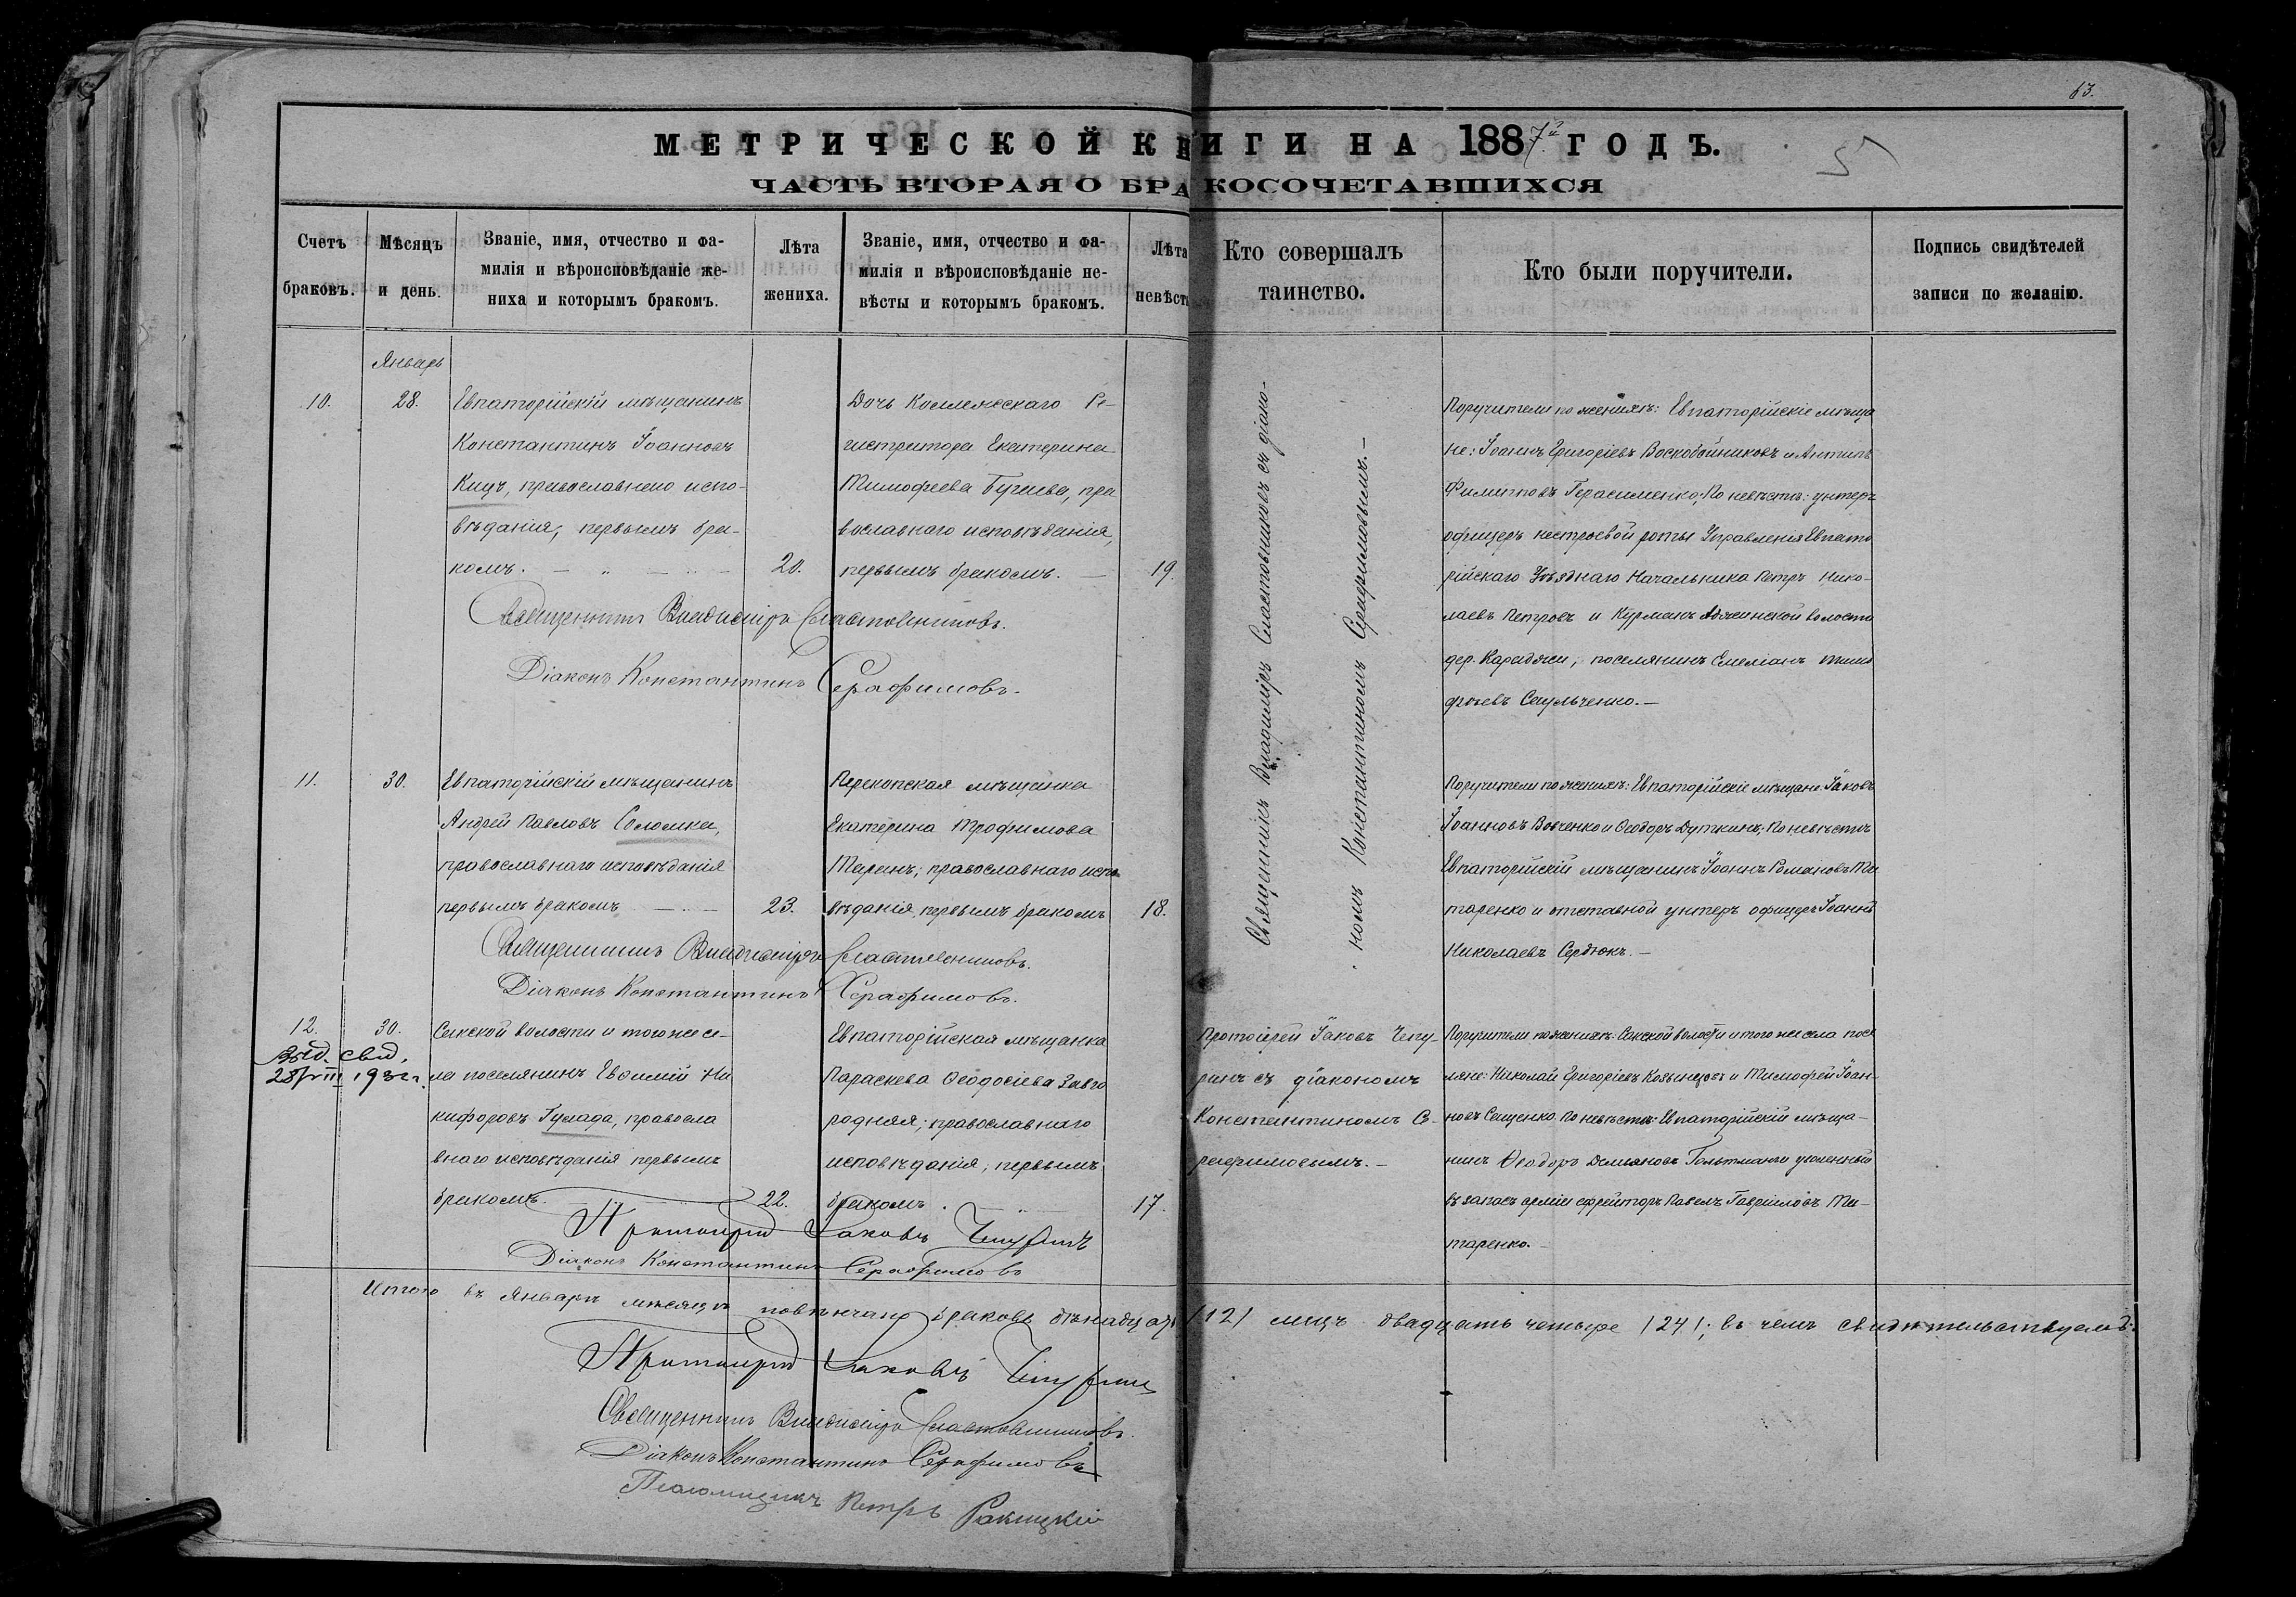 63.
МЕТРИЧЕСКОЙ КНИГИ НА 1887й ГОДЪ.
5
ЧАСТЬ ВТОРАЯ О БРАКОСОЧЕТАВШИХСЯ
Счетъ браковъ.
Мѣсяцъ и день.
Званіе, имя, отчество и фа-
милія и вѣроисповѣданіе же-
ниха и которымъ бракомъ.
Лѣта жениха.
Званіе, имя, отчество и фа-
милія и вѣроисповѣданіе не-
вѣсты и которымъ бракомъ.
Лѣта невѣсты
Кто совершалъ
таинство.
Кто были поручители.
Подпись свидѣтелей
записи по желанію.
Январь
10.
28.
Евпаторійскій мѣщанинъ
Константинъ Іоанновъ
Куцъ, православнаго испо-
вѣданія, первымъ бра-
комъ.
20.
Дочь Коллежскаго Ре-
гистратора Екатерина
Тимофеева, пра
вославнаго исповѣданія,
первымъ бракомъ.
19.
Священникъ Владиміръ Сластовниковъ съ діако-
номъ Константиномъ Серафимовымъ.
Поручители по женихѣ: Евпаторійскіе мѣща
не: Іоаннъ Григоріевъ Воскобойниковъ и Антипъ
Филипповъ Герасименко; По невѣстѣ: унтеръ
офицеръ нестроевой роты Управленія Евпато
рійскаго Уѣзднаго Начальника Петръ Нико-
лаевъ Петровъ и Курманъ Аджинской волости
дер. Караджи, поселянинъ Емеліанъ Тимо
фѣевъ Саульченко.
Священникъ Владиміръ Сластовниковъ.
Діаконъ Константинъ Серафимовъ.
11.
30.
Евпаторійскій мѣщанинъ
Андрей Павловъ Соломка,
православнаго исповѣданія
первымъ бракомъ
23.
Перекопская мѣщанка
Екатерина Трофимова
Таранъ, православнаго испо
вѣданія, первымъ бракомъ
18.
Поручители по женихѣ: Евпаторійскіе мѣщане: Іаковъ
Іоанновъ Вовченко и Ѳеодоръ Дуткинъ; По невѣстѣ
Евпаторійскій мѣщанинъ Іоаннъ Романовъ Ти
таренко и отставной унтеръ офицеръ Іоаннъ
Николаевъ Сердюкъ.
Священникъ Владиміръ Сластовниковъ.
Діаконъ Константинъ Серафимовъ.
12.
30.
Выд. свид.
28/VIII 193 г.
Сакской волости и того же се-
ла поселянинъ Евѳимій Ни
кифоровъ Гулада, правосла
внаго исповѣданія первымъ
бракомъ.
22.
Евпаторійская мѣщанка
Параскева Ѳеодосіева Завго
родняя; православнаго
исповѣданія, первымъ
бракомъ.
17.
Протоіерей Іаковъ Чепу-
ринъ съ діакономъ
Константиномъ Се-
рафимовымъ.
Поручители по женихѣ: Сакской волости и того же села посе
ляне: Николай Григоріевъ Козынцовъ и Тимофей Іоан-
новъ Сащенко. По невѣстѣ: Евпаторійскій мѣща-
нинъ Ѳеодоръ Деміяновъ Гольтманъ и уволенный
въ запасъ арміи ефрейторъ Павелъ Гавріиловъ Ти-
таренко.
Протоіерей Іаковъ Чепуринъ
Діаконъ Константинъ Серафимовъ
Итого въ Январѣ мѣсяцѣ повѣнчано браковъ двѣнадцать /12/ лицъ двадцать четыре /24/; въ чемъ свидѣтельствуемъ:
Протоіерей Іаковъ Чепуринъ
Священникъ Владиміръ Сластовниковъ.
Діаконъ Константинъ Серафимовъ
Псаломщикъ Петръ Ракицкій